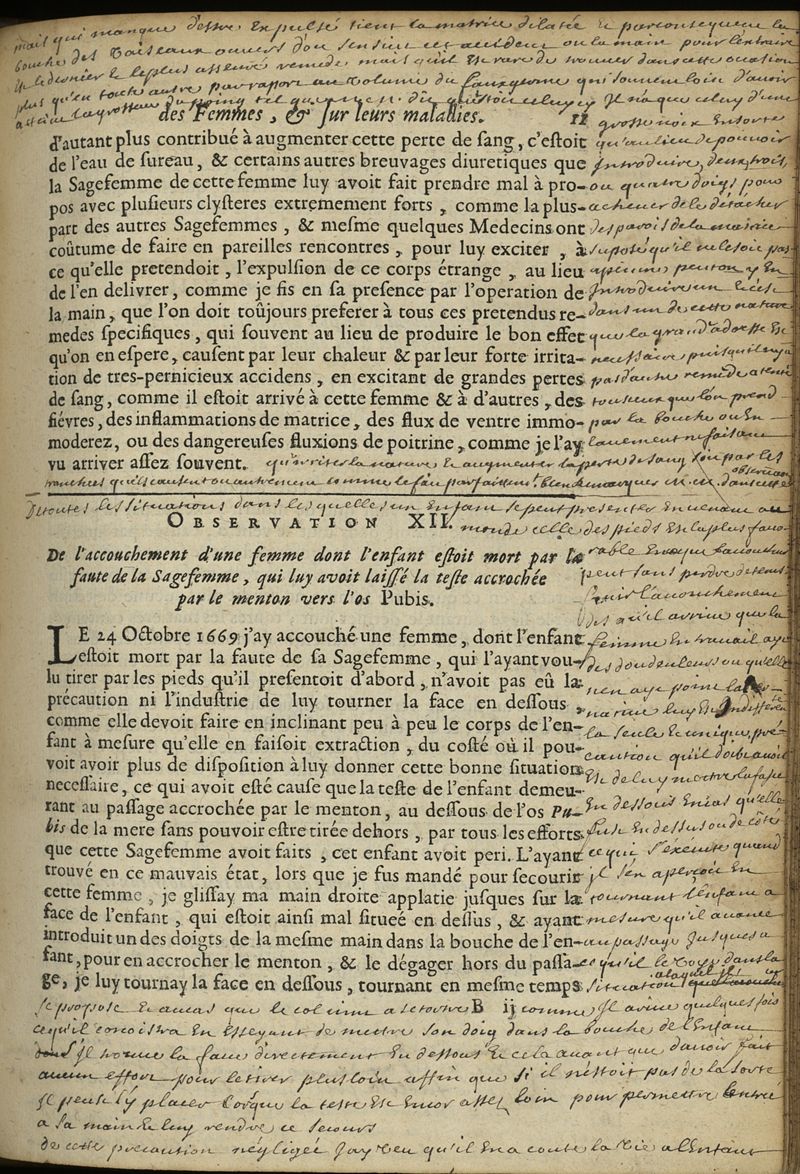 mais qui manque d'estre expulsé tient la matrice dilatée et par consequen la
bouche des vaisseaux ouvers d'ou sensuit cet accident ou la main pour lextraire
est le dernier et le plus asseuré remede mais qu'il est rare de trouver dans cette occasion
plus qu'en toute autre par rapport au volume du
des Femmes, & sur leurs maladies. 11
d'autant plus contribué à augmenter cette perte de sang, c'estoit
de l'eau de sureau, & certains autres breuvages diuretiques que
la Sagefemme de cette femme luy avoit fait prendre mal à pro-
pos avec plusieurs clysteres extremement forts, comme la plus-
part des autres Sagefemmes, & mesme quelques Medecins ont
coûtume de faire en pareilles rencontres, pour luy exciter, à
ce qu'elle pretendoit, l'expulsion de ce corps étrange, au lieu
de l'en delivrer, comme je fis en sa presence par l'operation de
la main, que l'on doit toûjours preferer à tous ces pretendus re-
medes specifiques, qui souvent au lieu de produire le bon effet
qu'on en espere, causent par leur chaleur & par leur forte irrita-
tion de tres-pernicieux accidens, en excitant de grandes pertes
de sang, comme il estoit arrivé à cette femme & à d'autres, des
fiévres, des inflammations de matrice, des flux de ventre immo-
moderez, ou des dangereuses fluxions de poitrine, comme je l'ay
vu arriver assez souvent.
grosse noix en sorte
qu'au lieu de pouvoir
introduire, deux, trois,
ou quatre doigs pour
achever de le detacher
des parois de la matrice
suposé qu'il ne le soit pas
a peine peut on y en
introduire un
dans un de cette nature
que la grand adresse est
necessaire puisquil ny a
pas d'autre remede a tenir
tous ceux que l'on prend
par la bouche ou en
lavement ne faisant
qu'irriter la nature et augmenter la perte de sang soit par les
tranchées qu'ils causent ou autrement comme le fait parfaitemt bien remarquer
De toutes les situations dans les quelles un enfant se peut presenter en venant au
OBSERVATION XII.
De l'accouchement d'une femme dont l'enfant estoit mort par la
faute de la Sagefemme, qui luy avoit laissé la teste accrochée
par le menton vers l'os Pubis.
LE 24 Octobre 1669 j'ay accouché une femme, dont l'enfant
estoit mort par la faute de sa Sagefemme, qui l'ayant vou-
lu tirer par les pieds qu'il presentoit d'abord, n'avoit pas eû la
précaution ni l'industrie de luy tourner la face en dessous,
comme elle devoit faire en inclinant peu à peu le corps de l'en-
fant à mesure qu'elle en faisoit extraction, du costé où il pou-
voit avoir plus de disposition à luy donner cette bonne situation
necessaire, ce qui avoit esté cause que la teste de l'enfant demeu-
rant au passage accrochée par le menton, au dessous de l'os Pu-
bis de la mere sans pouvoir estre tirée dehors, par tous les efforts
que cette Sagefemme avoit faits, cet enfant avoit peri. L'ayant
trouvé en ce mauvais état, lors que je fus mandé pour secourir
cette femme, je glissay ma main droite applatie jusques sur la
face de l'enfant, qui estoit ainsi mal situeé en dessus, & ayant
introduit un des doigts de la mesme main dans la bouche de l'en-
fant, pour en accrocher le menton, & le dégager hors du passa-
ge, je luy tournay la face en dessous, tournant en mesme temps
B ij
monde celle des pieds est la plus favo-
rable
peut sans perdre de tems
finir l'accouchement
des qu'il arrive que la
femme en travail aye
des douleurs ou qu'elle
n'en aye point
la seule et unique pré
caution qu'il doit avoir
est de luy mettre la face
en dessous en cas qu'elle
fusse en dessus ou de coté
ce qui s'execute quand
il s'en aperçoit en
tournant l'enfant a
mesure qu'il avance
au passage jusques a
ce qu'il le voye dans la
situation
se propose comme il arive quelques fois
ce qu'il conoistra en essayant de mettre son doig dans la bouche de l'enfant
il trouve la face directement en dessous et cela avant que d'avoir fait
aucun effort pour le tirer plus loin affin que si il n'estoit pas de la sorte
il peusse s'y placer lorsque la teste est encor assés loin pour permettre l'entrée
a sa main et luy rendre ce secours
de cette precaution negligée jay veu qu'il en a couté la vie a l'enfant